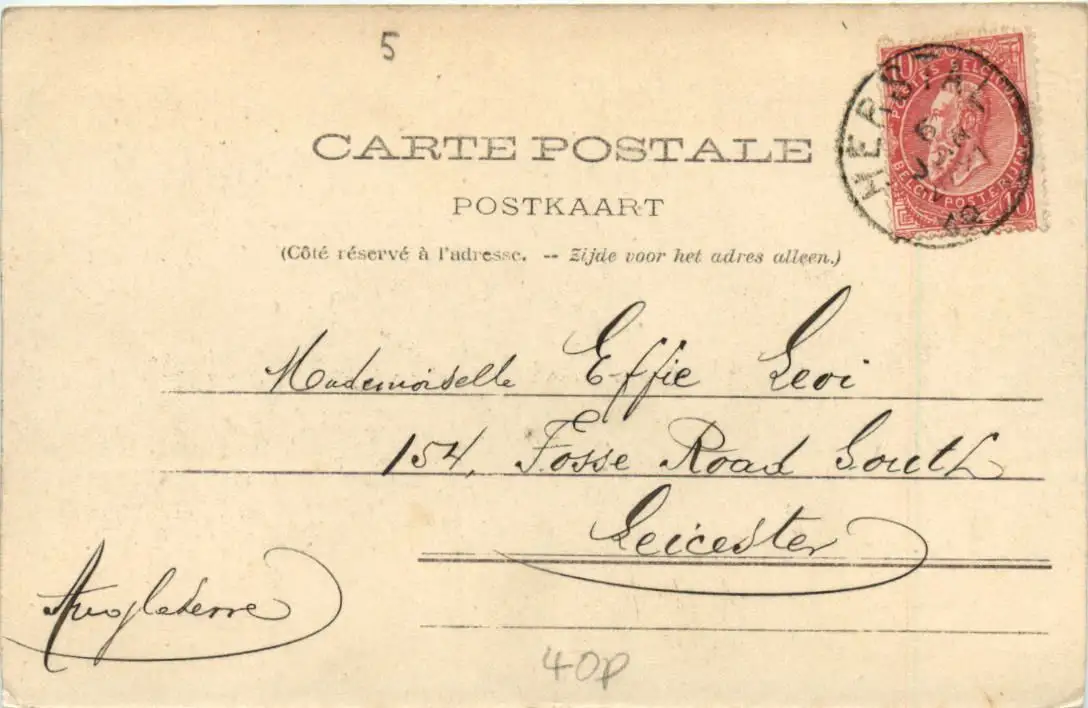 5
CARTE POSTALE
POSTKAART
(Côté réservé à l'adresse. -- Zijde voor het adres alleen.)
HERSTAL
6
JUIN
POSTES BELGIQUE
BELGIË POSTERIJEN
10 10
Mademoiselle Effie Levi
154, Fosse Road South
Leicester
Angleterre
40p